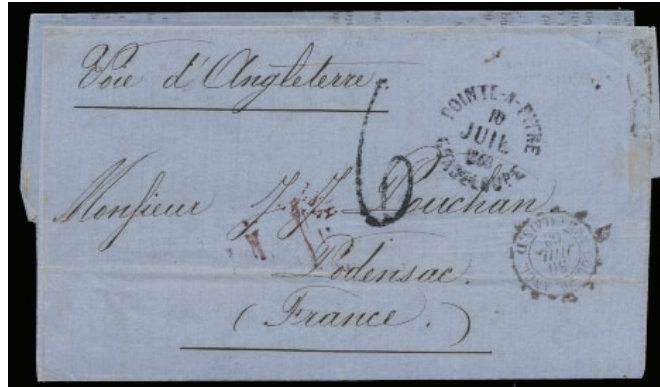 Voie d'Angleterre
POINTE-A-PITRE
10
JUIL
GUADELOUPE
6
Monsieur J. J. Pouchan
Podensac.
(France.)